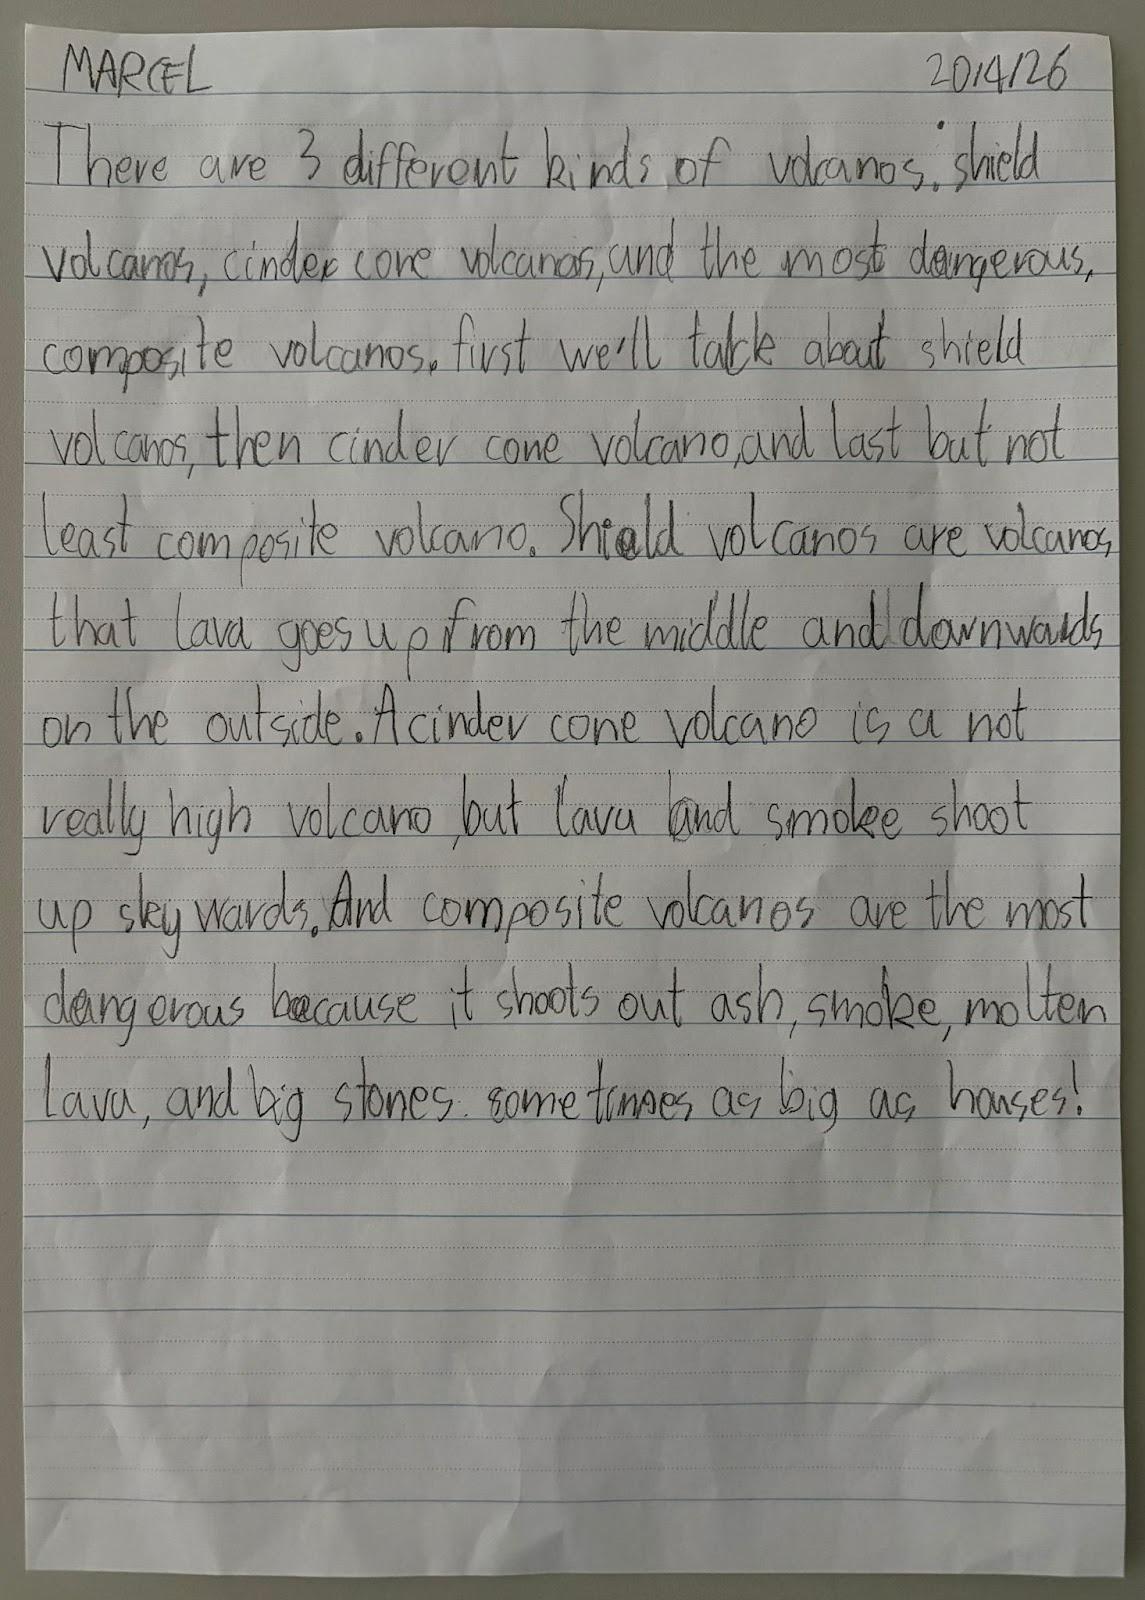 MARCEL 20/4/26
There are 3 different kinds of volcanos. shield
volcanos, cinder cone volcanos, and the most dangerous,
composite volcanos. first we'll talk about shield
volcanos, then cinder cone volcano, and last but not
least composite volcano. Shield volcanos are volcanos
that lava goes up from the middle and downwards
on the outside. A cinder cone volcano is a not
really high volcano, but lava and smoke shoot
up skywards. And composite volcanos are the most
dangerous because it shoots out ash, smoke, molten
lava, and big stones. sometimes as big as houses!